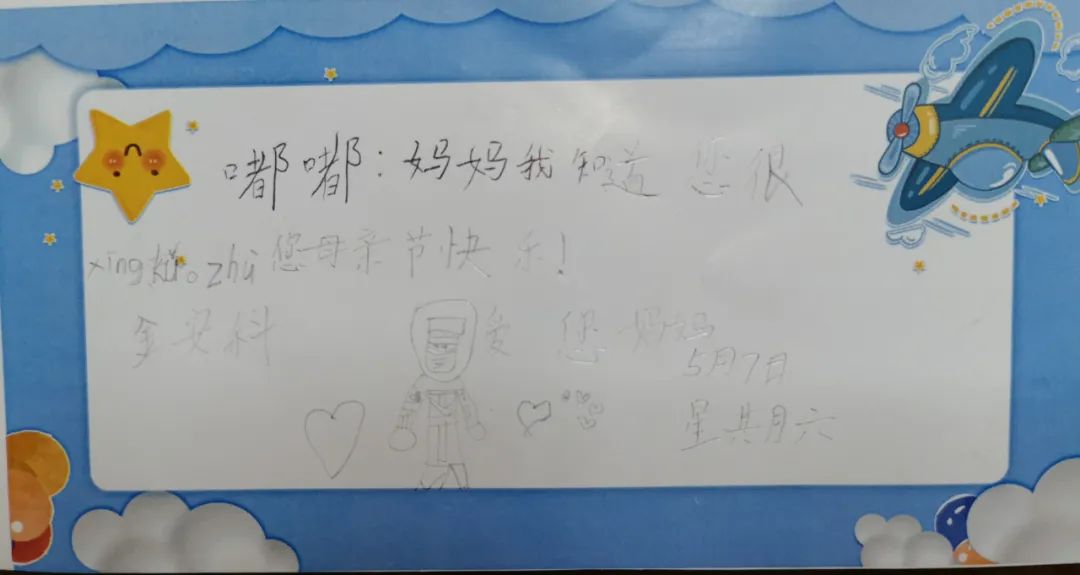 嘟嘟:妈妈我知道您很
xīng kǔ。zhù您母亲节快乐!
金安科 爱 您 妈妈
5月7日
星其月六